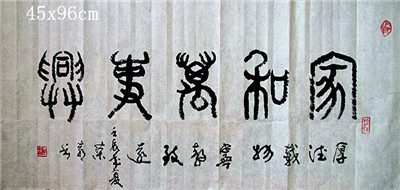 45x96cm
家和萬事興
厚德載物
寧靜致遠
壬辰年夏